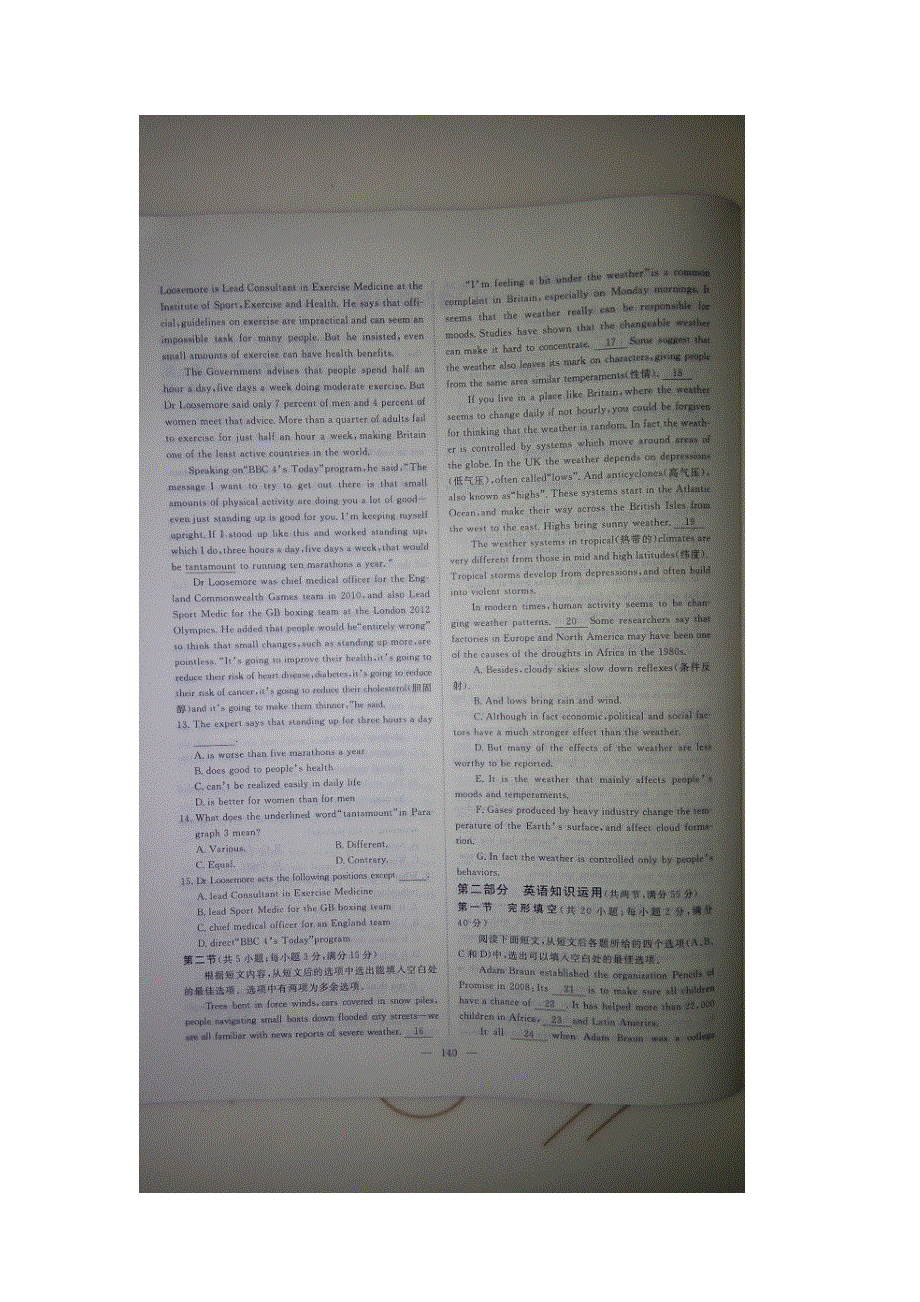 Loosemore is Lead Consultant in Exercise Medicine at the
Institute of Sport, Exercise and Health. He says that offi-
cial, guidelines on exercise are impractical and can seem an
impossible task for many people. But he insisted, even
small amounts of exercise can have health benefits.
The Government advises that people spend half an
hour a day, five days a week doing moderate exercise. But
Dr Loosemore said only 7 percent of men and 4 percent of
women meet that advice. More than a quarter of adults fail
to exercise for just half an hour a week, making Britain
one of the least active countries in the world.
Speaking on "BBC 4's Today" program, he said, "The
message I want to try to get out there is that small
amounts of physical activity are doing you a lot of good—
even just standing up is good for you. I'm keeping myself
upright. If I stood up like this and worked standing up,
which I do, three hours a day, five days a week, that would
be tantamount to running ten marathons a year."
Dr Loosemore was chief medical officer for the Eng-
land Commonwealth Games team in 2010, and also Lead
Sport Medic for the GB boxing team at the London 2012
Olympics. He added that people would be "entirely wrong"
to think that small changes, such as standing up more, are
pointless. "It's going to improve their health, it's going to
reduce their risk of heart disease, diabetes, it's going to reduce
their risk of cancer, it's going to reduce their cholesterol(胆固
醇)and it's going to make them thinner,"he said.
13. The expert says that standing up for three hours a day
______.
A. is worse than five marathons a year
B. does good to people's health
C. can't be realized easily in daily life
D. is better for women than for men
14. What does the underlined word "tantamount" in Para
graph 3 mean?
A. Various. B. Different.
C. Equal. D. Contrary.
15. Dr Loosemore acts the following positions except ____.
A. lead Consultant in Exercise Medicine
B. lead Sport Medic for the GB boxing team
C. chief medical officer for an England team
D. direct "BBC 4's Today" program
第二节(共5小题;每小题3分,满分15分)
根据短文内容,从短文后的选项中选出能填入空白处
的最佳选项。选项中有两项为多余选项。
Trees bent in force winds, cars covered in snow piles,
people navigating small boats down flooded city streets—we
are all familiar with news reports of severe weather. 16
"I'm feeling a bit under the weather" is a common
complaint in Britain, especially on Monday mornings. It
seems that the weather really can be responsible for
moods. Studies have shown that the changeable weather
can make it hard to concentrate. 17 Some suggest that
the weather also leaves its mark on characters, giving people
from the same area similar temperaments(性情). 18
If you live in a place like Britain, where the weather
seems to change daily if not hourly, you could be forgiven
for thinking that the weather is random. In fact the weath-
er is controlled by systems which move around areas of
the globe. In the UK the weather depends on depressions
(低气压), often called "lows". And anticyclones(高气压),
also known as "highs". These systems start in the Atlantic
Ocean, and make their way across the British Isles from
the west to the east. Highs bring sunny weather. 19
The weather systems in tropical(热带的)climates are
very different from those in mid and high latitudes(纬度).
Tropical storms develop from depressions, and often build
into violent storms.
In modern times, human activity seems to be chan-
ging weather patterns. 20 Some researchers say that
factories in Europe and North America may have been one
of the causes of the droughts in Africa in the 1980s.
A. Besides, cloudy skies slow down reflexes(条件反
射).
B. And lows bring rain and wind.
C. Although in fact economic, political and social fac-
tors have a much stronger effect than the weather.
D. But many of the effects of the weather are less
worthy to be reported.
E. It is the weather that mainly affects people's
moods and temperaments.
F. Gases produced by heavy industry change the tem-
perature of the Earth's surface, and affect cloud forma-
tion.
G. In fact the weather is controlled only by people's
behaviors.
第二部分 英语知识运用(共两节,满分55分)
第一节 完形填空(共20小题;每小题2分,满分
40分)
阅读下面短文,从短文后各题所给的四个选项(A、B、
C和D)中,选出可以填入空白处的最佳选项。
Adam Braun established the organization Pencils of
Promise in 2008. Its 21 is to make sure all children
have a chance of 22. It has helped more than 22,000
children in Africa, 23 and Latin America.
It all 24 when Adam Braun was a college
— 140 —